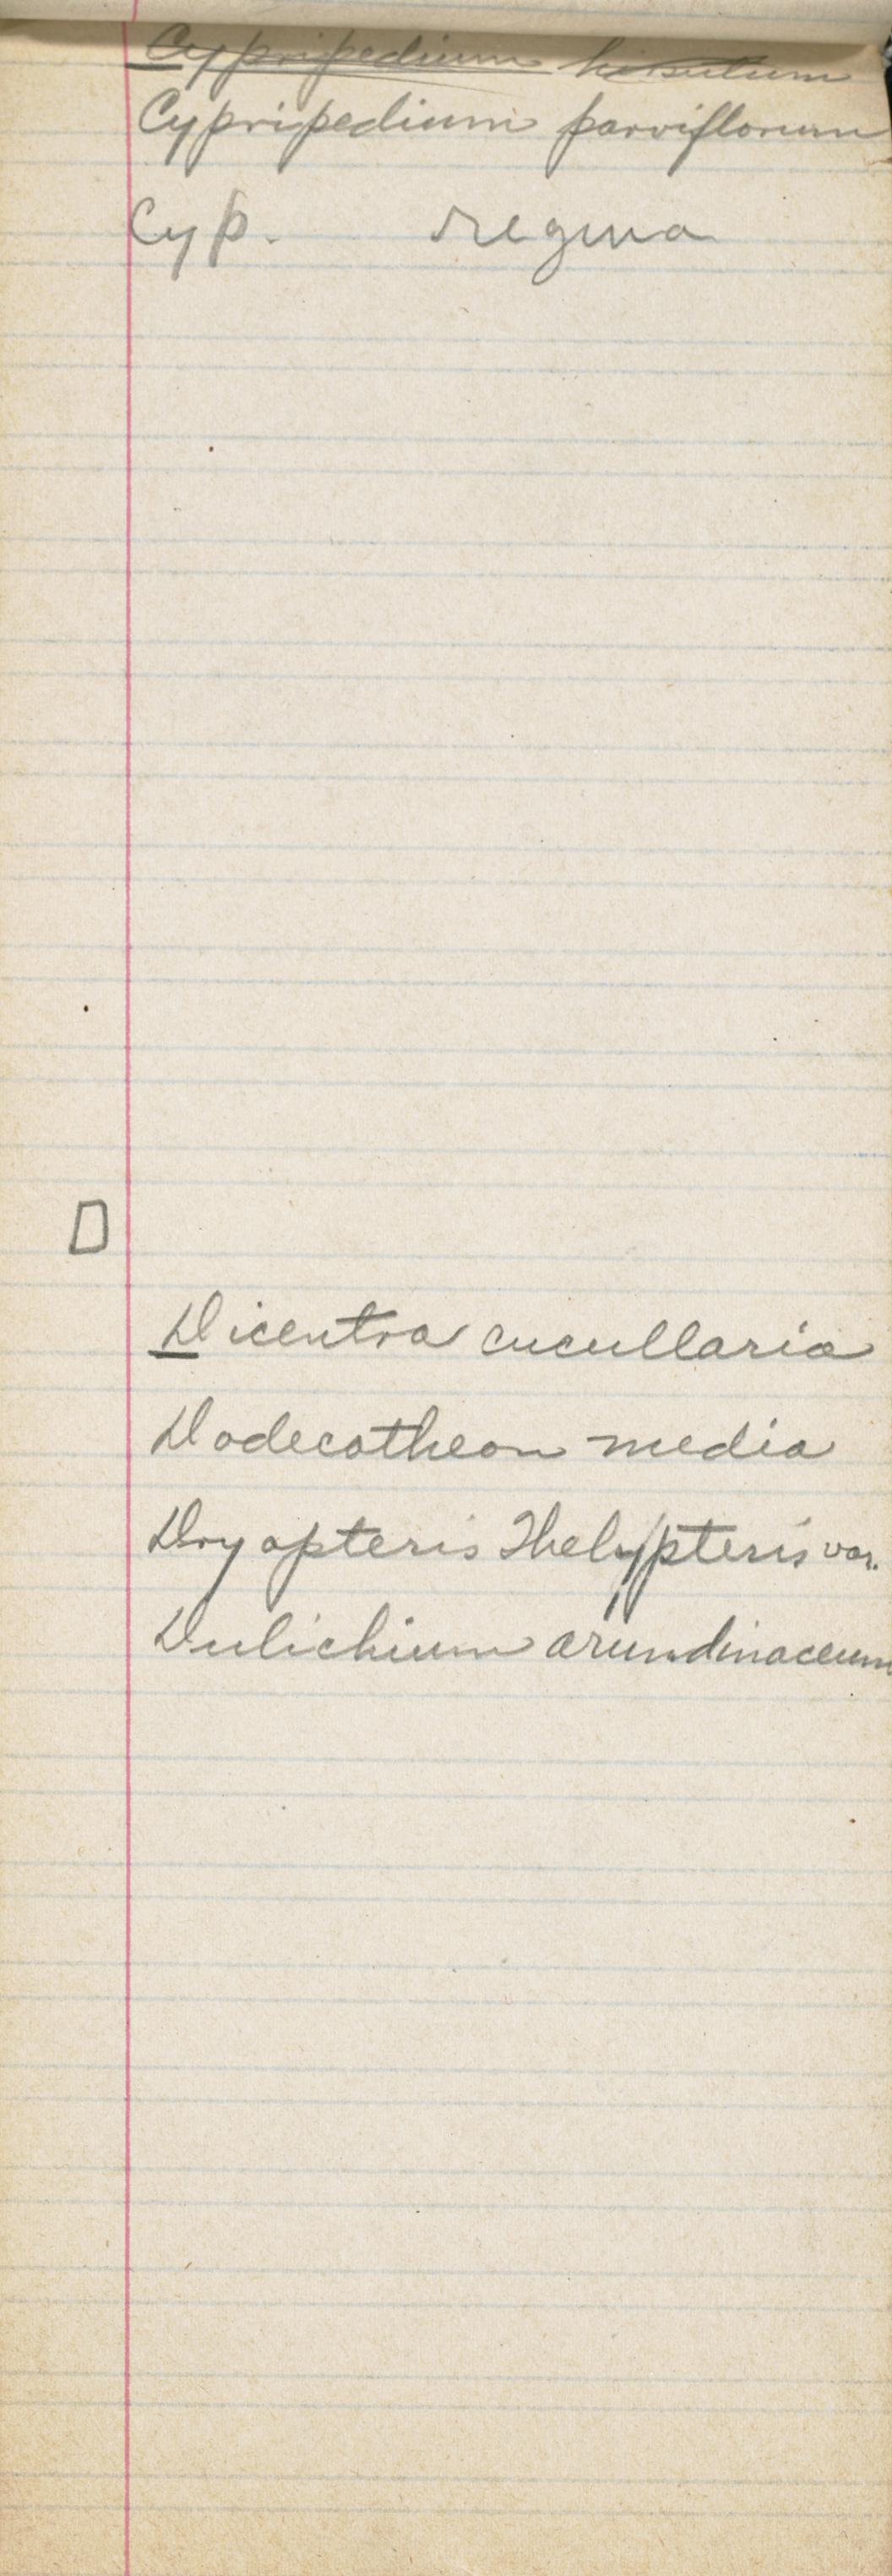 Cypripedium hirsutum
Cypripedium parviflorum
Cyp. regina
D
Dicentra cucullaria
Dodecatheon media
Dryopteris Thelypteris var.
Dulichium arundinaceum